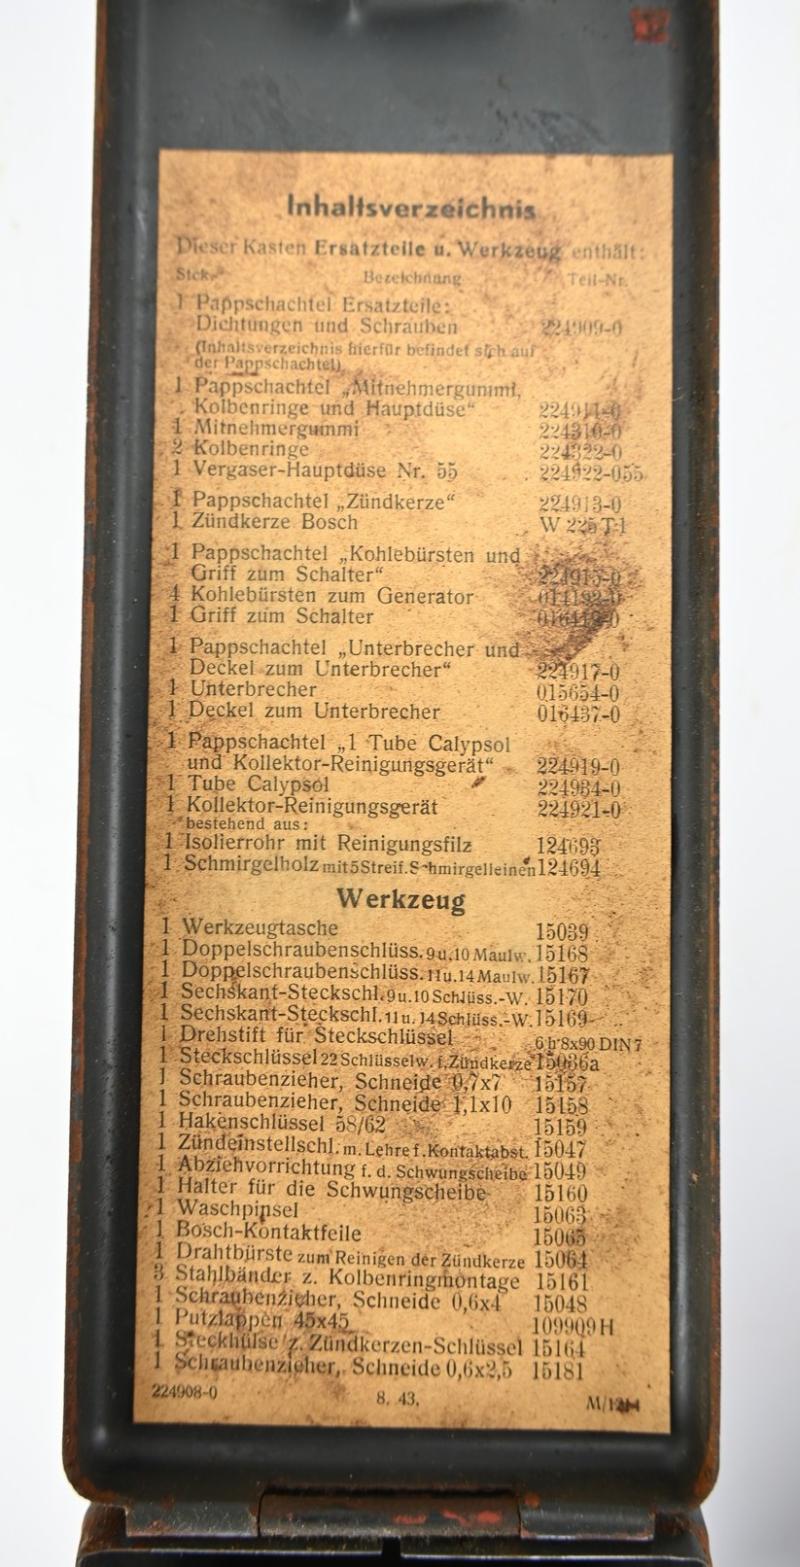 Inhaltsverzeichnis
Dieser Kasten Ersatzteile u. Werkzeug enthält:
Stck. Bezeichnung Teil-Nr.
1 Pappschachtel Ersatzteile:
Dichtungen und Schrauben 224909-0
(Inhaltsverzeichnis hierfür befindet sich auf
der Pappschachtel)
1 Pappschachtel „Mitnehmergummi,
Kolbenringe und Hauptdüse“ 224911-0
1 Mitnehmergummi 224310-0
2 Kolbenringe 224322-0
1 Vergaser-Hauptdüse Nr. 55 224922-055
1 Pappschachtel „Zündkerze“ 224913-0
1 Zündkerze Bosch W 225 T 1
1 Pappschachtel „Kohlebürsten und
Griff zum Schalter“ 224915-0
4 Kohlebürsten zum Generator
1 Griff zum Schalter
1 Pappschachtel „Unterbrecher und
Deckel zum Unterbrecher“ 224917-0
1 Unterbrecher 015654-0
1 Deckel zum Unterbrecher 016437-0
1 Pappschachtel „1 Tube Calypsol
und Kollektor-Reinigungsgerät“ 224919-0
1 Tube Calypsol 224934-0
1 Kollektor-Reinigungsgerät 224921-0
bestehend aus:
1 Isolierrohr mit Reinigungsfilz 124693
1 Schmirgelholz mit 5 Streif. Schmirgelleinen 124694
Werkzeug
1 Werkzeugtasche 15039
1 Doppelschraubenschlüss. 9 u. 10 Maulw. 15168
1 Doppelschraubenschlüss. 11 u. 14 Maulw. 15167
1 Sechskant-Steckschl. 9 u. 10 Schlüss.-W. 15170
1 Sechskant-Steckschl. 11 u. 14 Schlüss.-W. 15169
1 Drehstift für Steckschlüssel 6 h 8x90 DIN 7
1 Steckschlüssel 22 Schlüsselw. f. Zündkerze 15036a
1 Schraubenzieher, Schneide 0,7x7 15157
1 Schraubenzieher, Schneide 1,1x10 15158
1 Hakenschlüssel 58/62 15159
1 Zündeinstellschl. m. Lehre f. Kontaktabst. 15047
1 Abziehvorrichtung f. d. Schwungscheibe 15049
1 Halter für die Schwungscheibe 15160
1 Waschpinsel 15063
1 Bosch-Kontaktfeile 15065
1 Drahtbürste zum Reinigen der Zündkerze 15064
3 Stahlbänder z. Kolbenringmontage 15161
1 Schraubenzieher, Schneide 0,6x4 15048
1 Putzlappen 45x45 109909 H
1 Steckhülse z. Zündkerzen-Schlüssel 15164
1 Schraubenzieher, Schneide 0,6x2,5 15181
224908-0 8. 43.